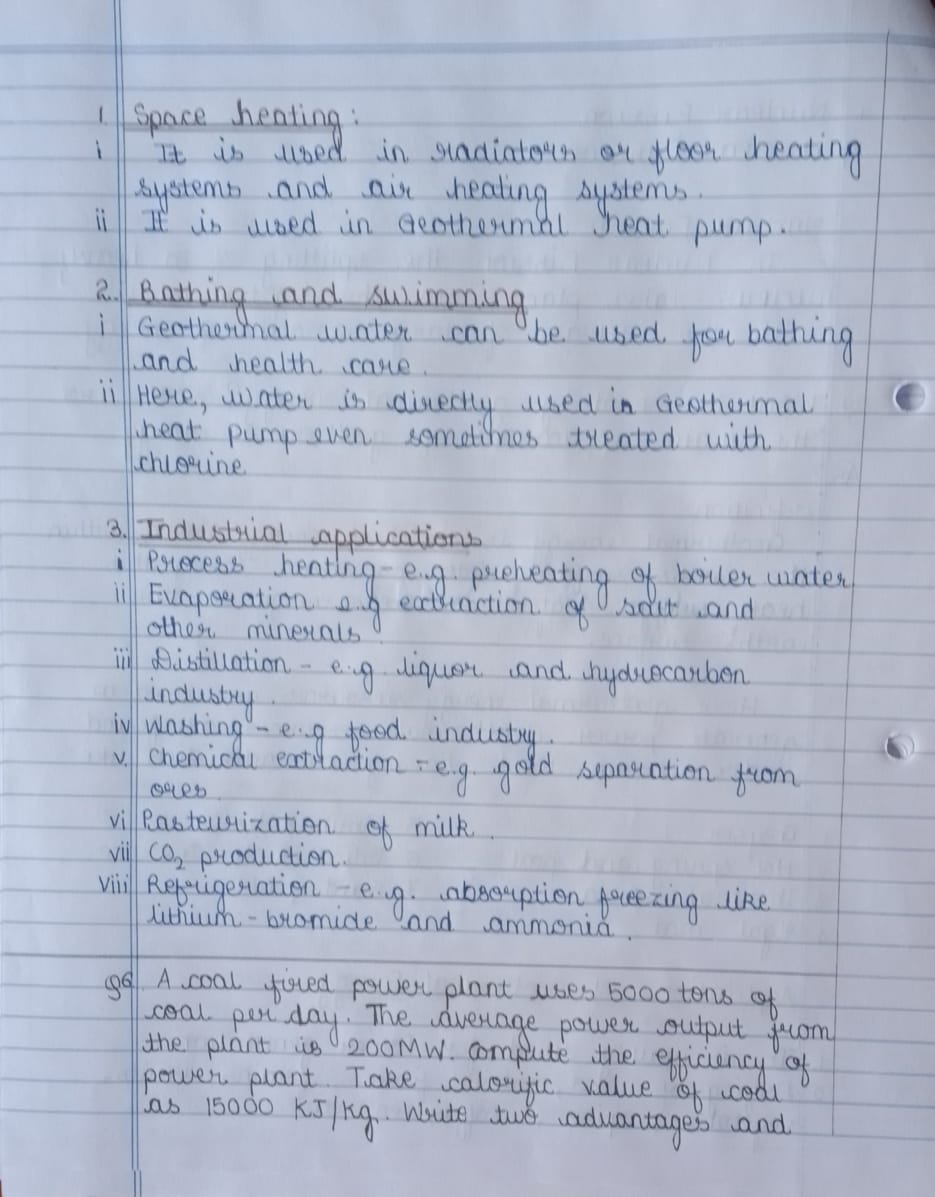 1. Space heating:
i It is used in radiators or floor heating
systems and air heating systems.
ii It is used in Geothermal heat pump.
2. Bathing and swimming
i Geothermal water can be used for bathing
and health care.
ii Here, water is directly used in Geothermal
heat pump even sometimes treated with
chlorine
3. Industrial applications
i Process heating - e.g. preheating of boiler water
ii Evaporation e.g extraction of salt and
other minerals
iii Distillation - e.g liquor and hydrocarbon
industry.
iv Washing - e.g food industry.
v. Chemical extraction - e.g. gold separation from
ores
vi Pasteurization of milk.
vii CO2 production.
viii Refrigeration - e.g. absorption freezing like
lithium - bromide and ammonia.
Q6. A coal fired power plant uses 5000 tons of
coal per day. The average power output from
the plant is 200MW. Compute the efficiency of
power plant. Take calorific value of coal
as 15000 KJ/Kg. Write two advantages and